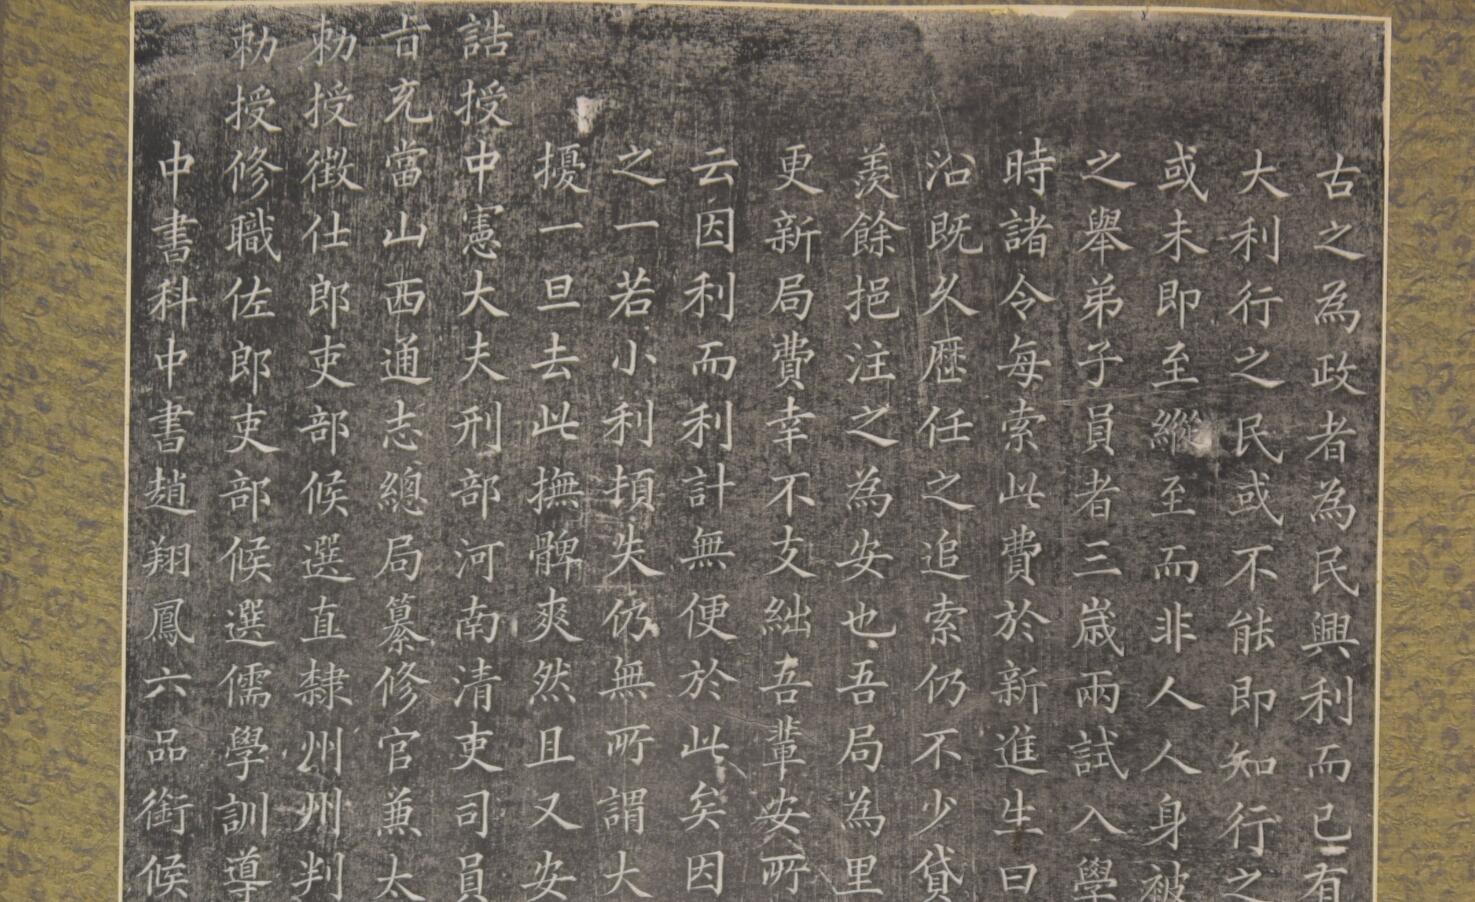 古之為政者為民興利而已有
大利行之民或不能即知行之
或未即至縱至而非人人身被
之舉弟子員者三歲兩試入學
時諸令每索此費於新進生曰
沿既久歷任之追索仍不少貸
羨餘挹注之為安也吾局為里
更新局費幸不支絀吾輩安所
云因利而利計無便於此矣因
之一若小利頓失仍無所謂大
擾一旦去此撫髀爽然且又安
誥授中憲大夫刑部河南清吏司員
旨充當山西通志總局纂修官兼太
勅授徵仕郎吏部候選直隸州州判
勅授修職佐郎吏部候選儒學訓導
中書科中書趙翔鳳六品銜候